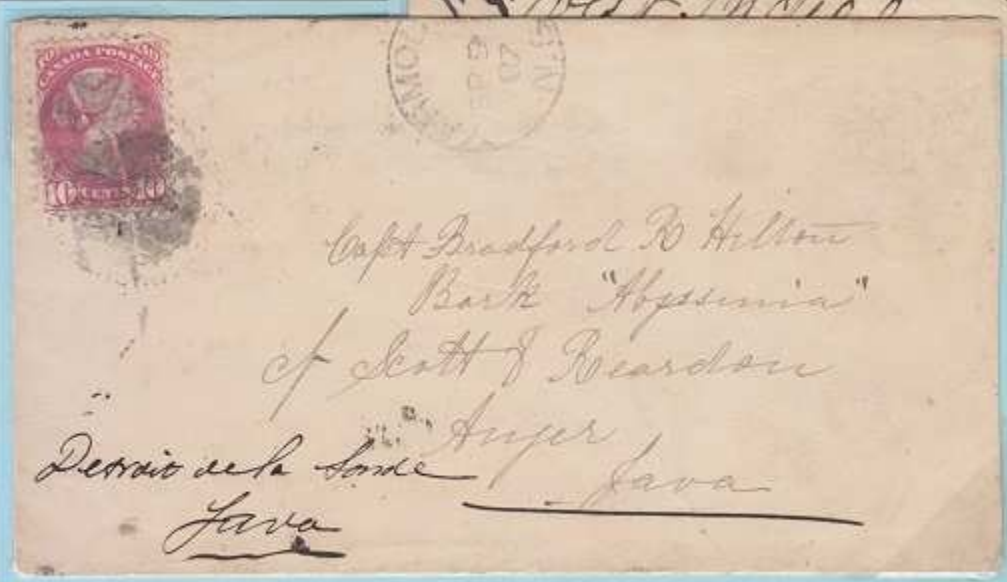 West Indies
CANADA POSTAGE
10 CENTS 10
SP 9
87
Capt Bradford R Hilton
Bark "Abyssinia"
c/ Scott & Reardon
Anjer
Java
Detroit de la Sonde
Java